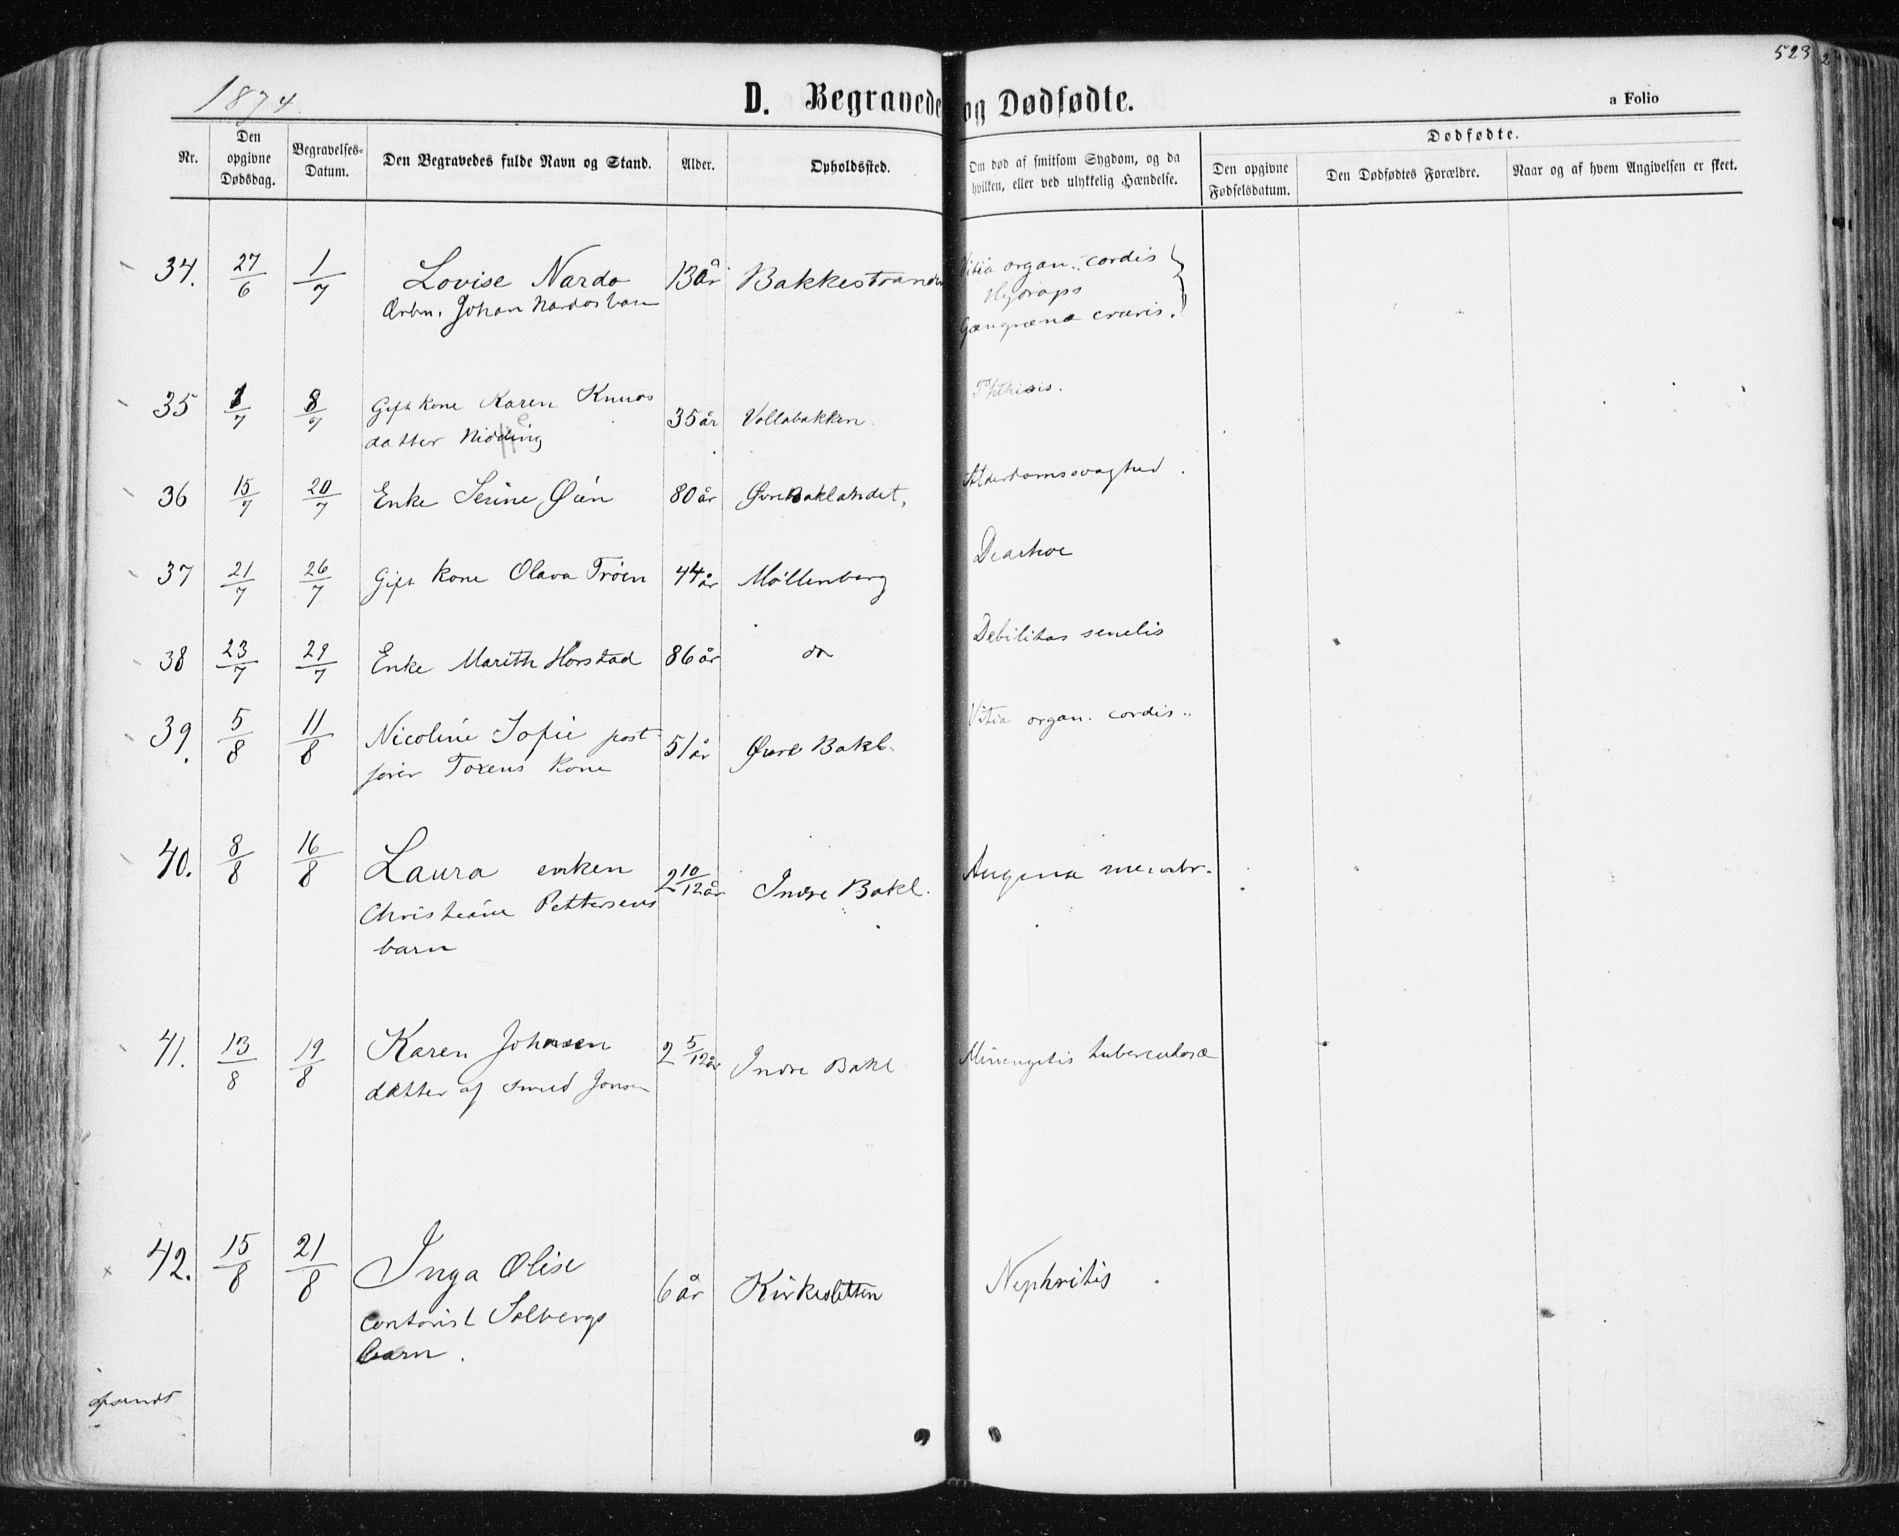 523
1874.
D. Begravede og Dødfødte.
a Folio
Nr.
Den opgivne Dødsdag.
Begravelses-Datum.
Den Begravedes fulde Navn og Stand.
Alder.
Opholdssted.
Om død af smitsom Sygdom, og da hvilken, eller ved ulykkelig Hændelse.
Dødfødte.
Den opgivne Fødselsdatum.
Den Dødfødtes Forældre.
Naar og af hvem Angivelsen er skeet.
34. 27/6 1/7 Lovise Nardo 13 år Bakkestranden Vitia organ. cordis
Arbm. Johan Nardos barn Hydrops
Gangræna cruris.
35 1/7 8/7 Gift kone Karen Knuds 35 år Vollabakken. Phthisis.
datter
36 15/7 20/7 Enke Serine Øien 80 år Øvre Baklandet, Alderdomssvaghed.
37 21/7 26/7 Gift kone Olava Trøen 44 år Møllenberg Diarhoe
38 23/7 29/7 Enke Marith Horstad 86 år do Debilitas senelis
39. 5/8 11/8 Nicoline Sofie post 51 år Øvre Bakl. Vitia organ. cordis.
fører Toxens kone
40. 8/8 16/8 Laura enken 2 10/12 år Indre Bakl. Angina membr.
Christiane Pettersens
barn
41. 13/8 19/8 Karen Johnsen 2 5/12 år Indre Bakl Miningitis tuberculosæ
datter af smed Jonsen
42. 15/8 21/8 Inga Olise 6 år Kirkesletten Nephritis.
contorist Solbergs
barn.
opsendt